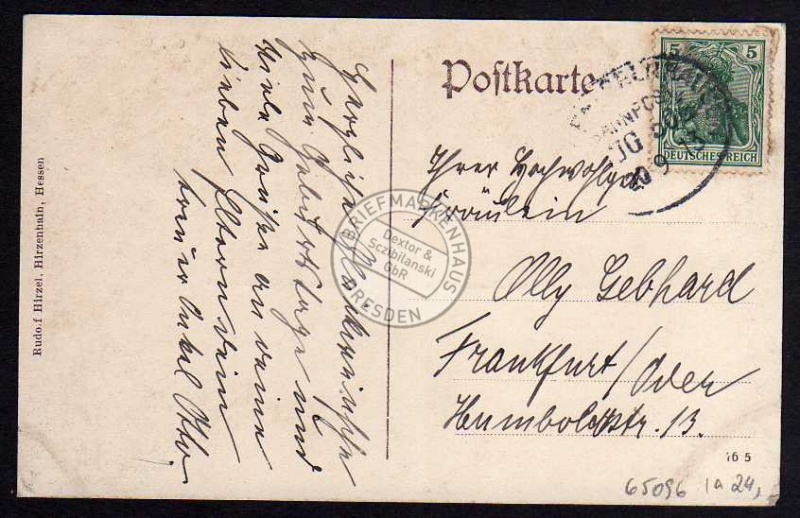 Postkarte
5 5
DEUTSCHES REICH
BAHNPOST
Herzliche Glückwünsche
zum Geburtstage und
viele Grüße an deine
lieben Eltern dein
treuer Onkel Otto.
Ihrer Hochwohlgeb
Fräulein
Olly Gebhard
Frankfurt/Oder
Humboldtstr. 13.
Rudolf Hirzel, Hirzenhain, Hessen
BRIEFMARKENHAUS
Dextor &
Sczibilanski
GbR
DRESDEN
16 5
65096 1a 24,